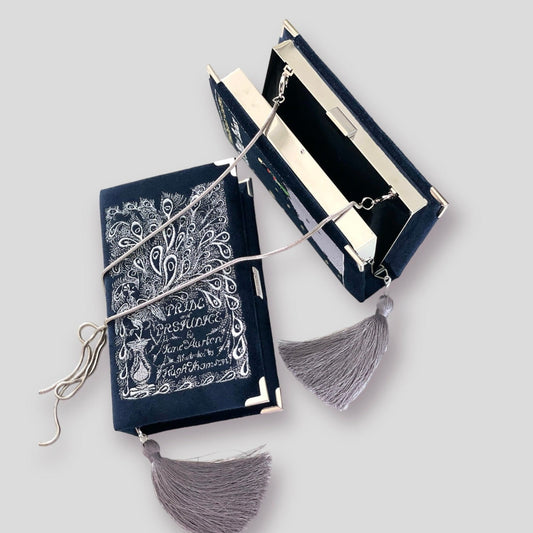 PRIDE
and
PREJUDICE
by
Jane Austen
Illustrated by
Hugh Thomson